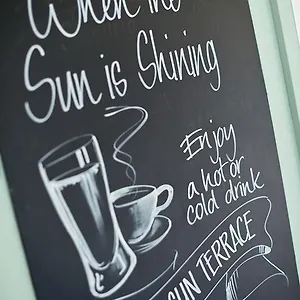 When the
Sun is Shining
Enjoy
a hot or
cold drink
SUN TERRACE